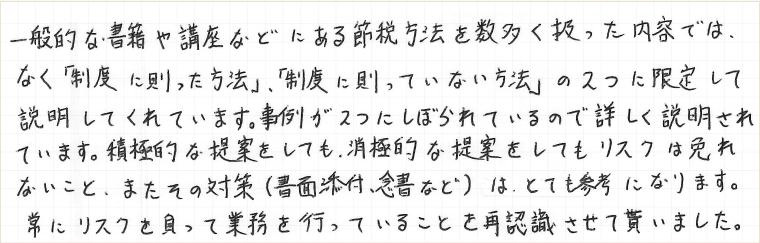 一般的な書籍や講座などにある節税方法を数多く扱った内容では、
なく「制度に則った方法」、「制度に則っていない方法」の2つに限定して
説明してくれています。事例が2つにしぼられているので詳しく説明され
ています。積極的な提案をしても、消極的な提案をしてもリスクは免れ
ないこと、またその対策(書面添付、念書など)は、とても参考になります。
常にリスクを負って業務を行っていることを再認識させて貰いました。